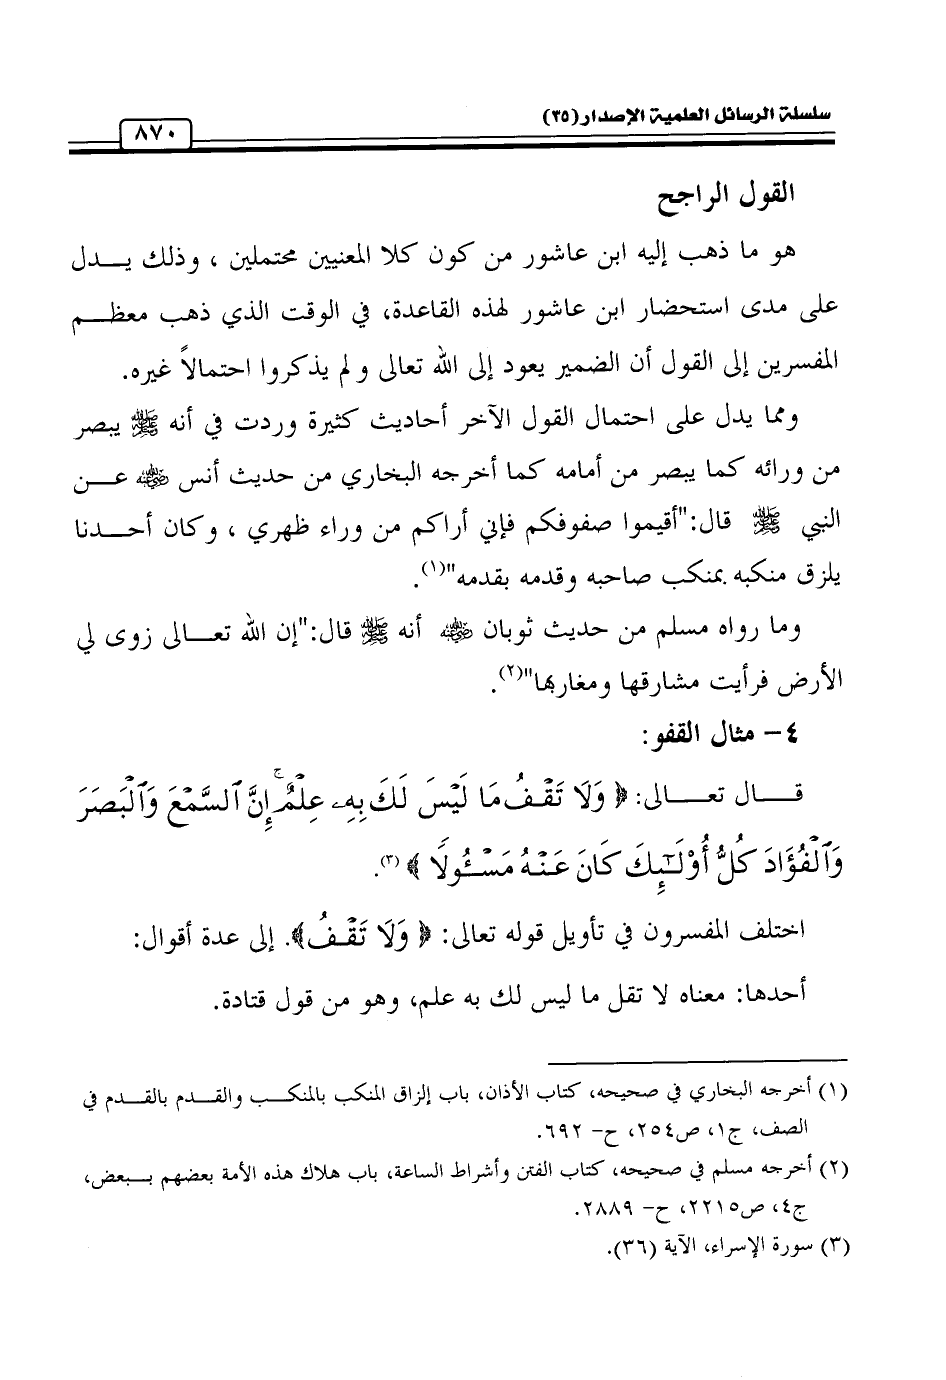 سلسلة الرسائل العلمية الإصدار (٣٥)
٨٧٠
القول الراجح
هو ما ذهب إليه ابن عاشور من كون كلا المعنيين محتملين ، وذلك يـــدل
على مدى استحضار ابن عاشور لهذه القاعدة، في الوقت الذي ذهب معظـــم
المفسرين إلى القول أن الضمير يعود إلى الله تعالى و لم يذكروا احتمالاً غيره.
ومما يدل على احتمال القول الآخر أحاديث كثيرة وردت في أنه ﷺ يبصر
من ورائه كما يبصر من أمامه كما أخرجه البخاري من حديث أنس رضي الله عنه عـــن
النبي ﷺ قال:"أقيموا صفوفكم فإني أراكم من وراء ظهري ، وكان أحـــدنا
يلزق منكبه بمنكب صاحبه وقدمه بقدمه"(١).
وما رواه مسلم من حديث ثوبان رضي الله عنه أنه ﷺ قال:"إن الله تعـــالى زوى لي
الأرض فرأيت مشارقها ومغاربها"(٢).
٤ – مثال القفو:
قـــال تعـــالى: ﴿ وَلَا تَقْفُ مَا لَيْسَ لَكَ بِهِۦ عِلْمٌ ۚ إِنَّ ٱلسَّمْعَ وَٱلْبَصَرَ
وَٱلْفُؤَادَ كُلُّ أُوْلَـٰٓئِكَ كَانَ عَنْهُ مَسْـُٔولًا ﴾ (٣).
اختلف المفسرون في تأويل قوله تعالى: ﴿ وَلَا تَقْفُ ﴾. إلى عدة أقوال:
أحدها: معناه لا تقل ما ليس لك به علم، وهو من قول قتادة.
(١) أخرجه البخاري في صحيحه، كتاب الأذان، باب إلزاق المنكب بالمنكـــب والقـــدم بالقـــدم في
الصف، ج١، ص٢٥٤، ح– ٦٩٢.
(٢) أخرجه مسلم في صحيحه، كتاب الفتن وأشراط الساعة، باب هلاك هذه الأمة بعضهم بـــبعض،
ج٤، ص٢٢١٥، ح– ٢٨٨٩.
(٣) سورة الإسراء، الآية (٣٦).